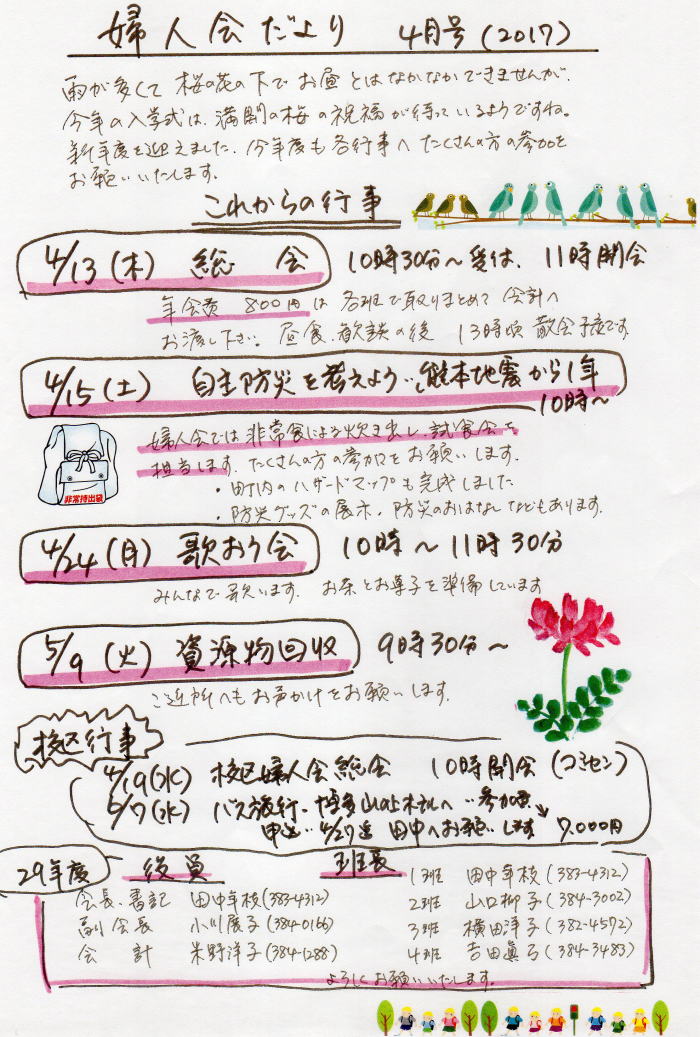 婦人会だより 4月号(2017)
雨が多くて桜の花の下でお昼とはなかなかできませんが、
今年の入学式は、満開の桜の祝福が待っているようですね。
新年度を迎えました。今年度も各行事へたくさんの方の参加を
お願いいたします。
これからの行事
4/13(木) 総会 10時30分〜受付、11時開会
年会費 800円は各班で取りまとめて会計へ
お渡し下さい。昼食、歓談の後 13時頃 散会予定です
4/15(土) 自主防災を考えよう…熊本地震から1年
10時〜
婦人会では非常食による炊き出し、試食会を
担当します。たくさんの方の参加をお願いします。
・町内のハザードマップも完成しました
・防災グッズの展示、防災のおはなしなどもあります。
非常持出袋
4/24(月) 歌おう会 10時〜11時30分
みんなで歌います。お茶とお菓子を準備しています
5/9(火) 資源物回収 9時30分〜
ご近所へもお声かけをお願いします。
校区行事
4/19(水) 校区婦人会総会 10時開会(コミセン)
5/7(水) バス旅行・博多山の上ホテルへ…参加費
申込…4/27迄 田中へお願いします 7,000円
29年度 役員 班長
会長、書記 田中年枝(383-4312)
副会長 小川展子(384-0166)
会計 米野洋子(384-1288)
1班 田中年枝(383-4312)
2班 山口柳子(384-3002)
3班 横田洋子(382-4572)
4班 吉田眞弓(384-3483)
よろしくお願いいたします。